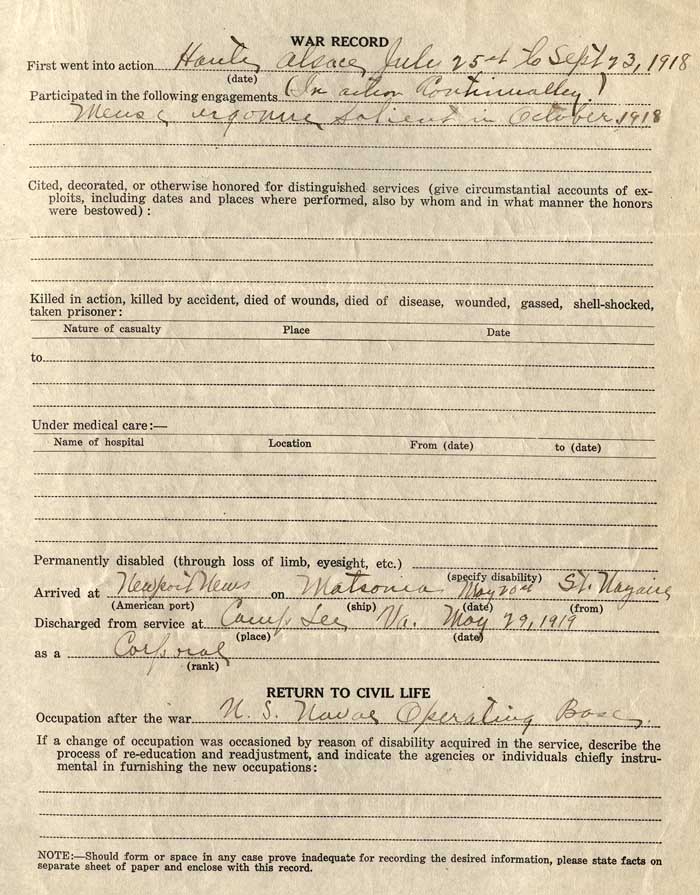 WAR RECORD
First went into action Haute Alsace, July 25st to Sept 23, 1918
(date)
Participated in the following engagements (In action Continualley)
Meuse Argonne Salient in October 1918
Cited, decorated, or otherwise honored for distinguished services (give circumstantial accounts of ex-
ploits, including dates and places where performed, also by whom and in what manner the honors
were bestowed) :
Killed in action, killed by accident, died of wounds, died of disease, wounded, gassed, shell-shocked,
taken prisoner:
Nature of casualty Place Date
to
Under medical care:—
Name of hospital Location From (date) to (date)
Permanently disabled (through loss of limb, eyesight, etc.)
(specify disability)
Arrived at Newport News on Matsonia May 20st St. Nazaire
(American port) (ship) (date) (from)
Discharged from service at Camp Lee Va. May 29, 1919
(place) (date)
as a Corporal
(rank)
RETURN TO CIVIL LIFE
Occupation after the war U. S. Naval Operating Base.
If a change of occupation was occasioned by reason of disability acquired in the service, describe the
process of re-education and readjustment, and indicate the agencies or individuals chiefly instru-
mental in furnishing the new occupations:
NOTE:—Should form or space in any case prove inadequate for recording the desired information, please state facts on
separate sheet of paper and enclose with this record.